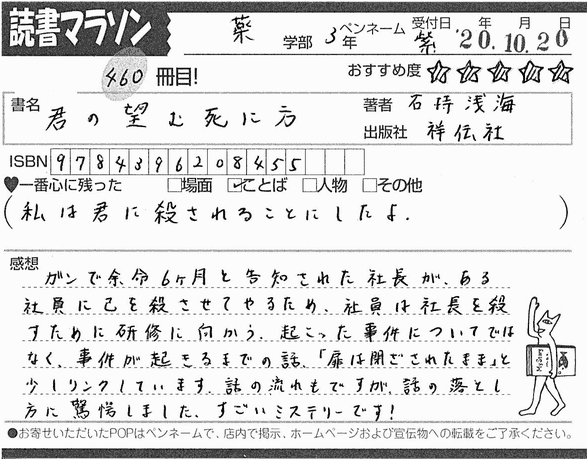 読書マラソン 薬 学部 3年 ペンネーム 紫 受付日 '20年.10月.20日
460 冊目! おすすめ度 ☆☆☆☆☆
書名 君の望む死に方 著者 石持浅海
出版社 祥伝社
ISBN 9784396208455
♥一番心に残った □場面 ☑ことば □人物 □その他
(私は君に殺されることにしたよ.)
感想
ガンで余命6ヶ月と告知された社長が、ある
社員に己を殺させてやるため、社員は社長を殺
すために研修に向かう。起こった事件についてでは
なく、事件が起きるまでの話、「扉は閉ざされたまま」と
少しリンクしています。話の流れもですが、話の落とし
方に驚愕しました、すごいミステリーです!
●お寄せいただいたPOPはペンネームで、店内で掲示、ホームページおよび宣伝物への転載をご了承ください。